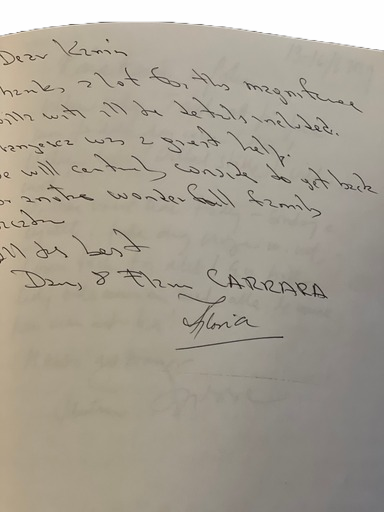 Dear Karin
thanks a lot for the magnificent
villa with all the details included.
was a great help.
we will certainly consider to get back
for another wonderfull family
vacation
all the best
Dan, & CARRARA